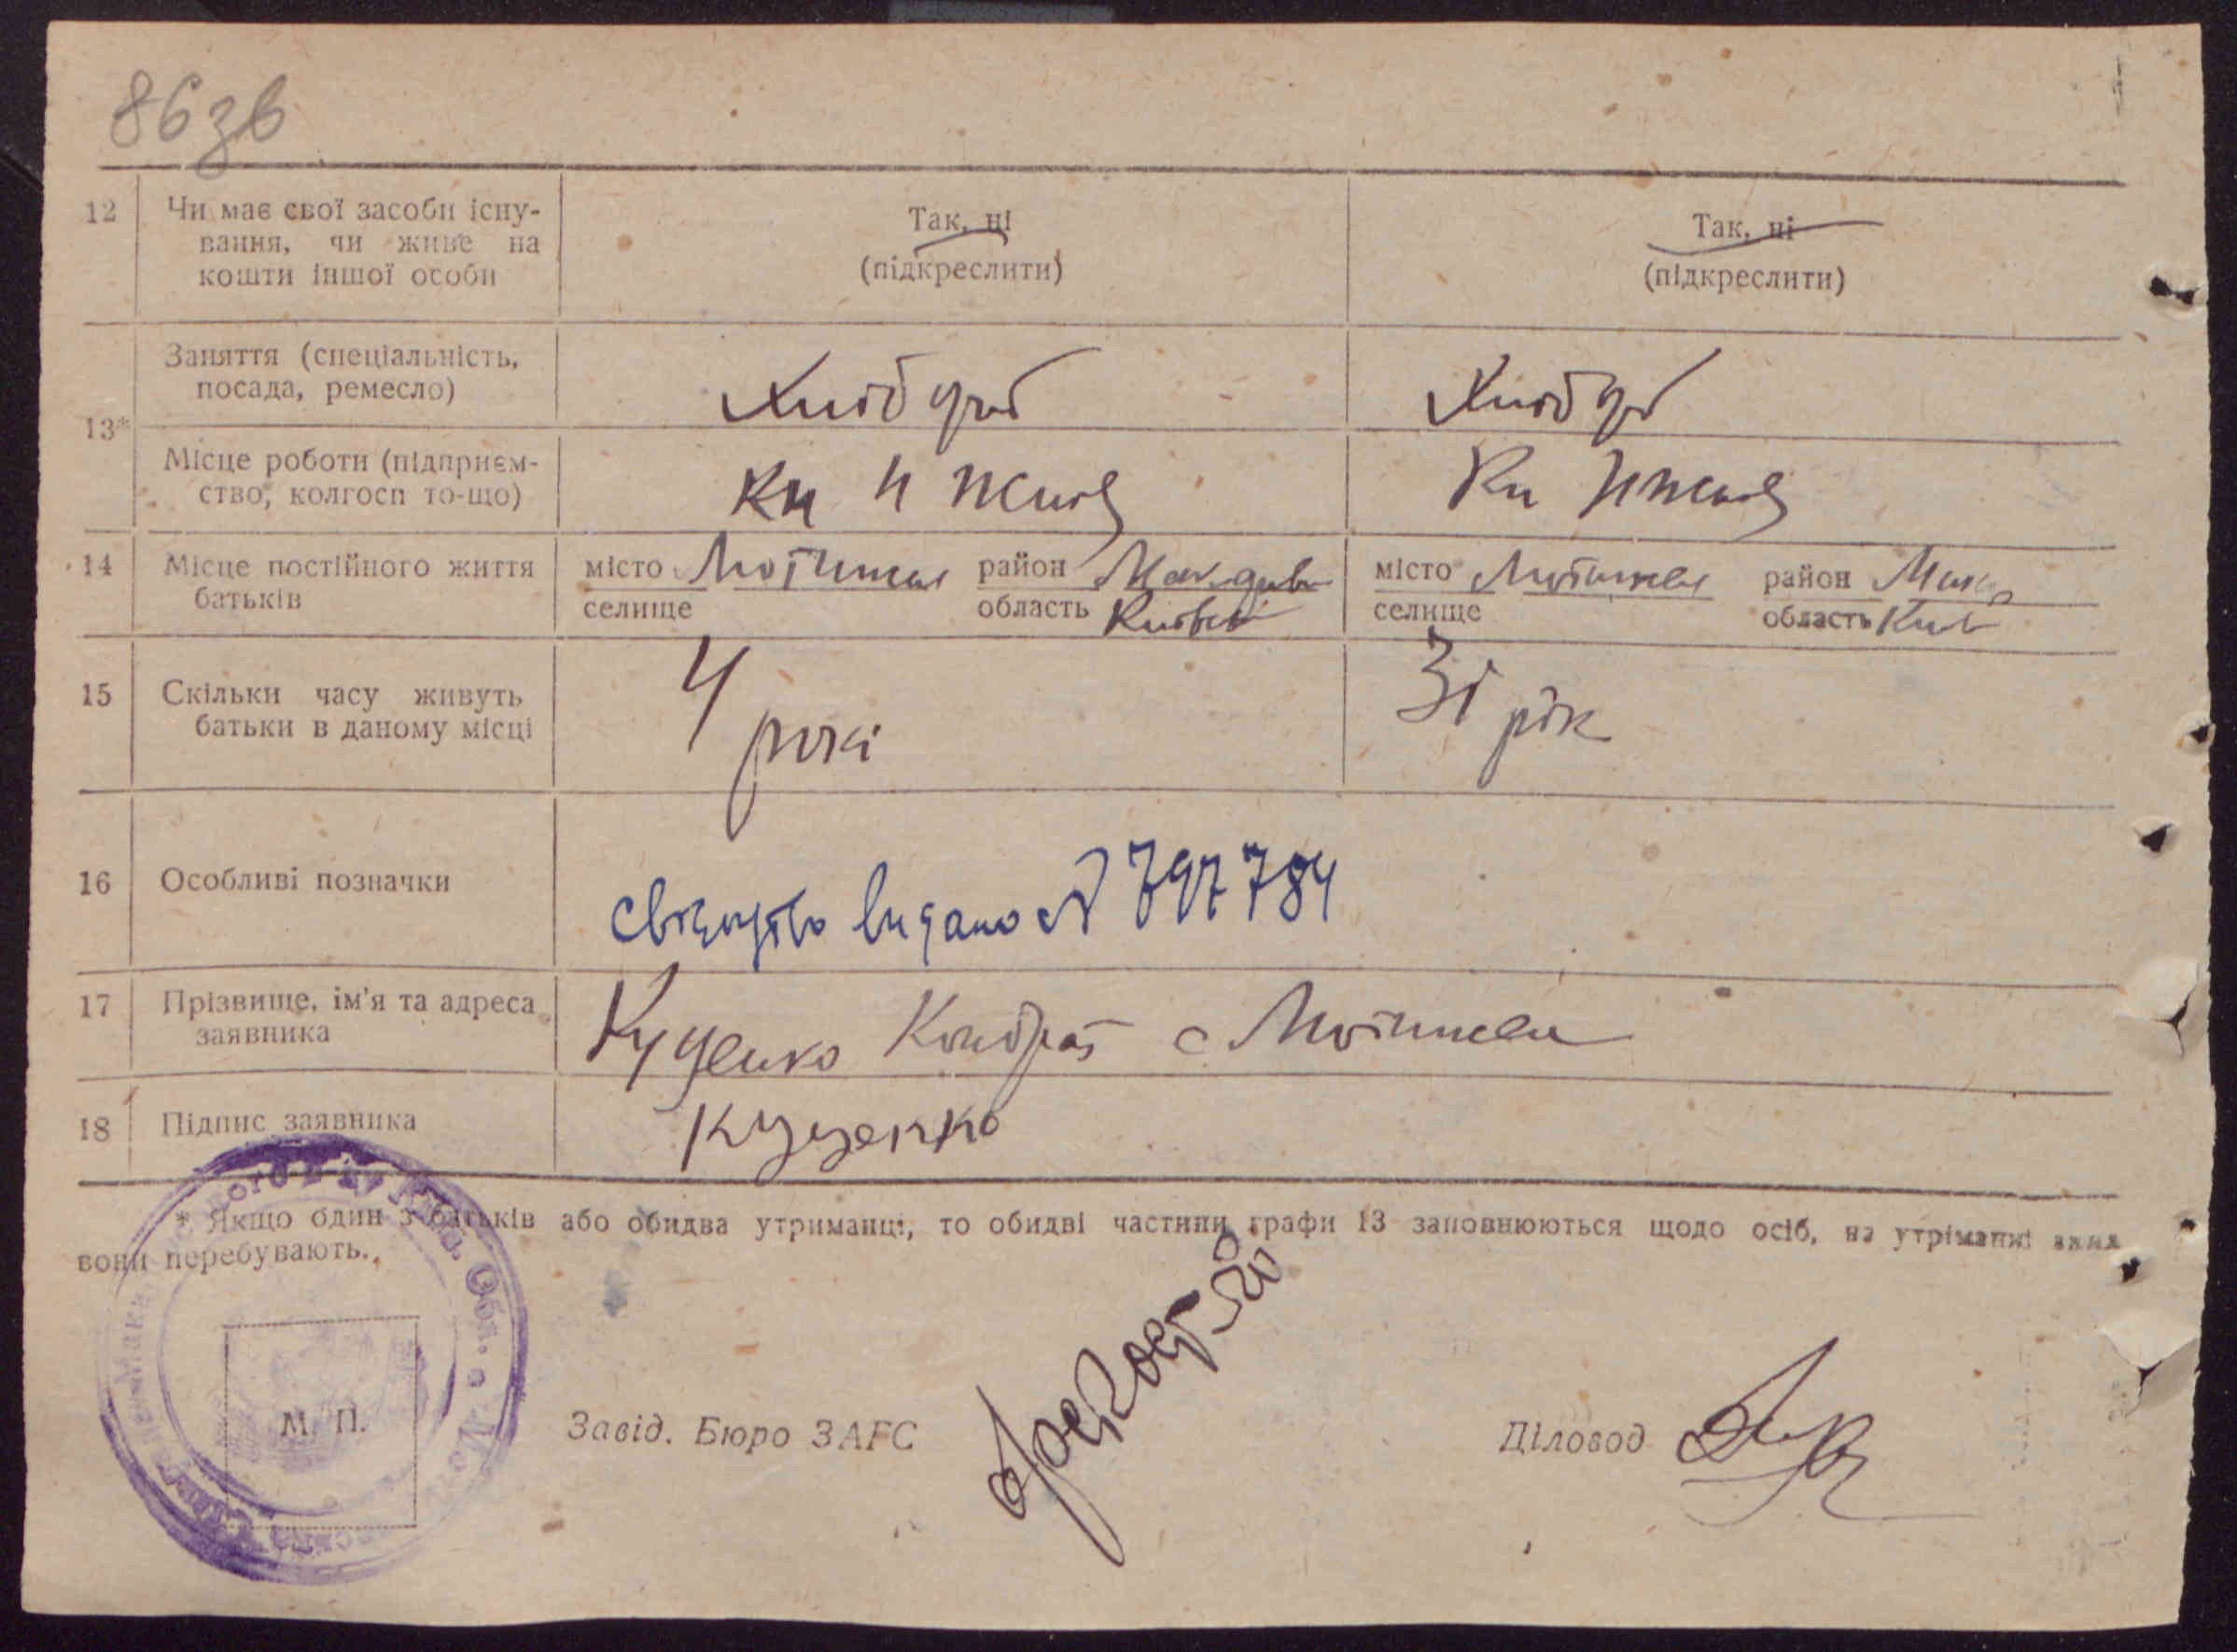 86зв
12 Чи має свої засоби існу-
вання, чи живе на
кошти іншої особи
Так, ні
(підкреслити)
Так, ні
(підкреслити)
13*
Заняття (спеціальність,
посада, ремесло)
Хлібороб
Хлібороб
Місце роботи (підприєм-
ство, колгосп то-що)
14 Місце постійного життя
батьків
місто Мотижин район Макарів
селище область Київськ
місто Мотижин район Мак
селище область Київ
15 Скільки часу живуть
батьки в даному місці
4 рокі
31 рік
16 Особливі позначки
свідоцтво видано № 797784
17 Прізвище, ім'я та адреса
заявника
Куценко Кондрат с Мотижин
18 Підпис заявника
Куценко
* Якщо один з батьків або обидва утриманці, то обидві частини графи 13 заповнюються щодо осіб, на утріманні яких
вони перебувають.
М. П.
Завід. Бюро ЗАГС
Діловод